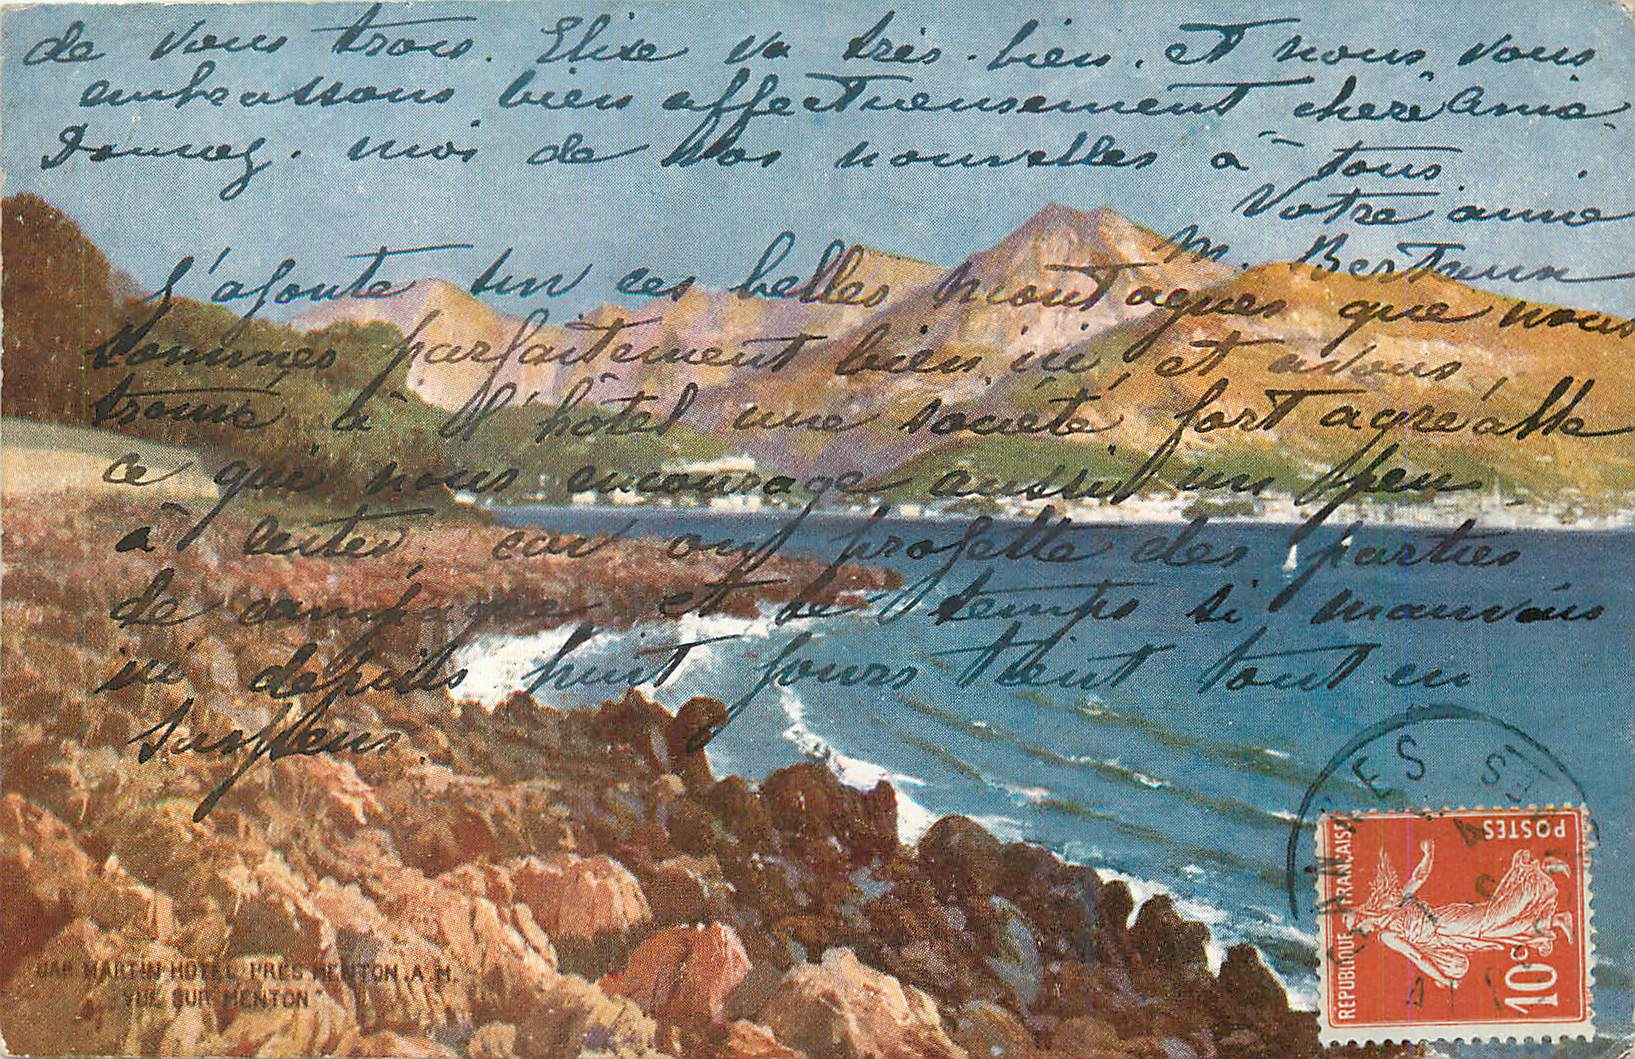 de vous trois. Elise va très bien. et nous vous
embrassons bien affectueusement chère Amie
Donnez. moi de vos nouvelles à tous.
Votre amie
M. Bertaux
J'ajoute sur ces belles montagnes que nous
sommes parfaitement bien ici, et avons
trouvé à l'hôtel une société fort agréable
ce qui nous encourage aussi un peu
à rester, car on projette des parties
de campagne et le temps si mauvais
ici depuis huit jours tient tout en
suspens.
CAP MARTIN HOTEL PRES MENTON A. M.
VUE SUR MENTON
REPUBLIQUE FRANÇAISE
POSTES
10c